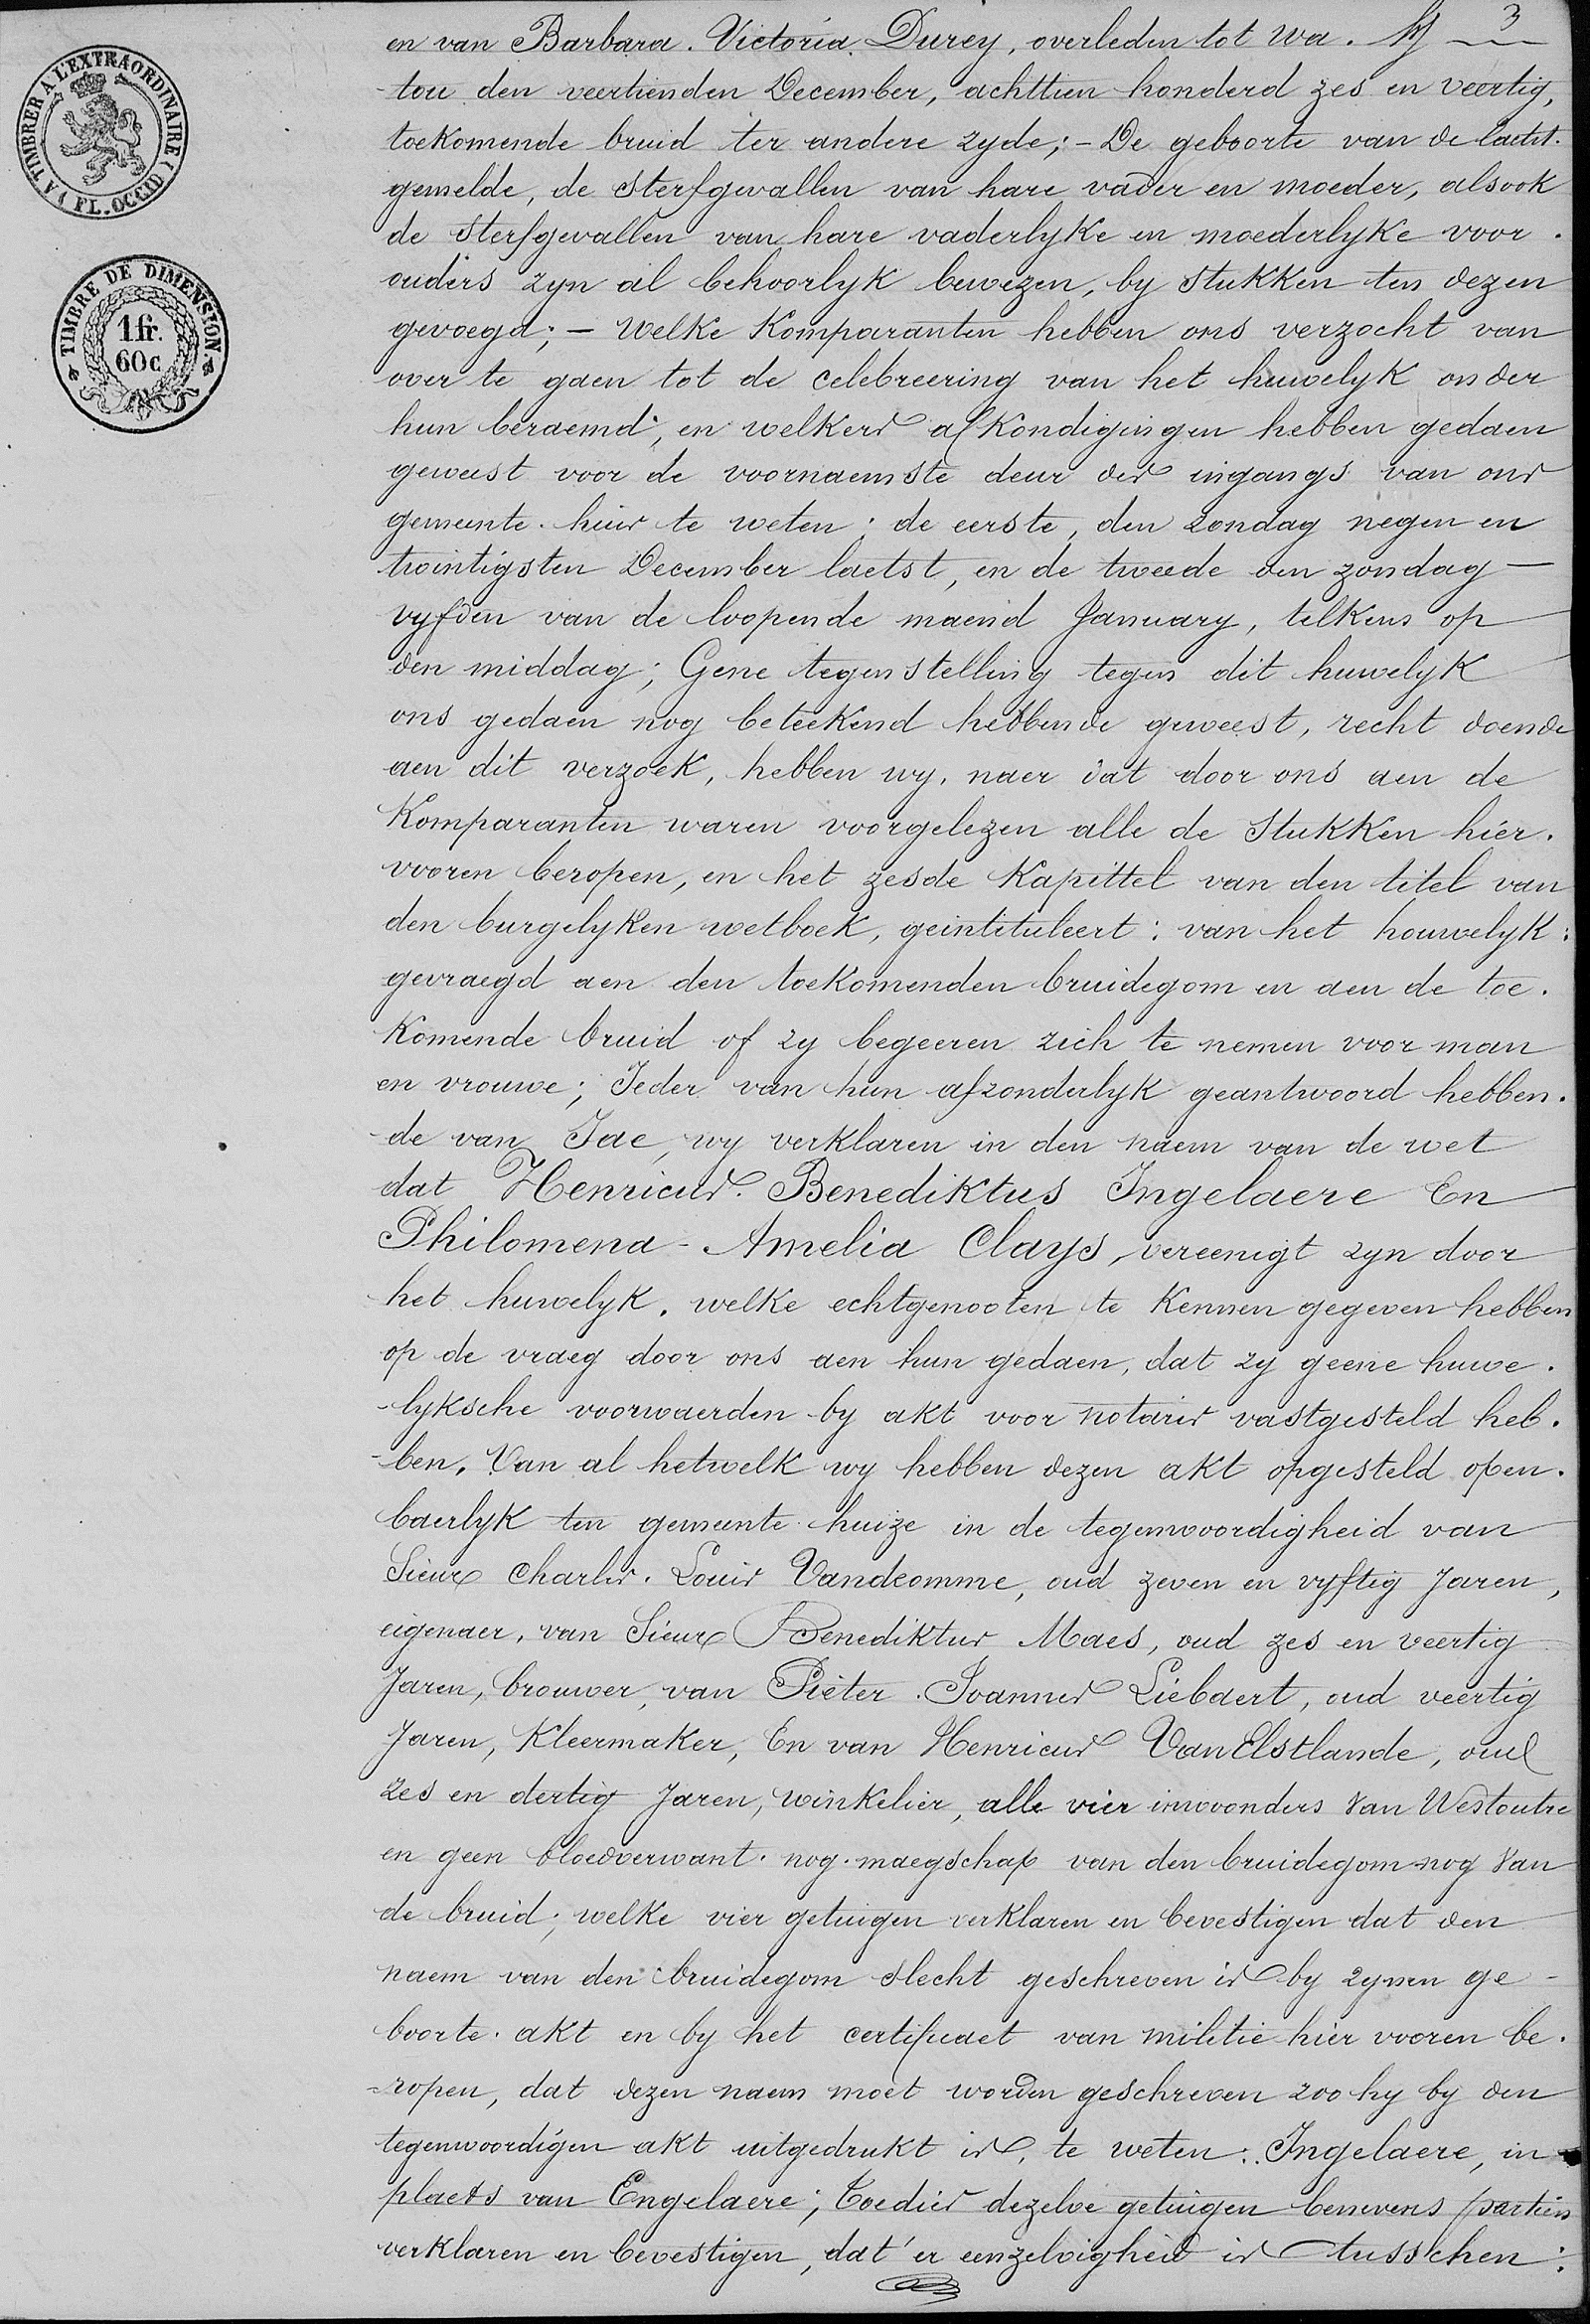 3
A TIMBRER A L'EXTRAORDINAIRE
(FL. OCCID)
TIMBRE DE DIMENSION.
1 fr.
60 c
en van Barbara. Victoria. Durey, overleden tot Wa.
tou den veertienden December, achttien honderd zes en veertig,
toekomende bruid ter andere zyde; - De geboorte van de laetst.
gemelde, de sterfgevallen van hare vader en moeder, alsook
de sterfgevallen van hare vaderlyke en moederlyke voor.
ouders zyn al behoorlyk bewezen, by stukken ten dezen
gevoegd; - Welke Komparanten hebben ons verzocht van
over te gaen tot de celebreering van het huwelyk onder
hun beraemd, en welkers afkondigingen hebben gedaen
geweest voor de voornaemste deur des ingangs van ons
gemeente. huis te weten: de eerste, den zondag negen en
twintigsten December laetst, en de tweede den zondag -
vyfden van de loopende maend January, telkens op
den middag; Gene tegenstelling tegen dit huwelyk
ons gedaen nog beteekend hebbende geweest, recht doende
aen dit verzoek, hebben wy, naer dat door ons aen de
Komparanten waren voorgelezen alle de Stukken hier.
vooren beropen, en het zesde Kapittel van den titel van
den burgelyken wetboek, geintituleert: van het houwelyk:
gevraegd aen den toekomenden bruidegom en aen de toe.
Komende bruid of zy begeeren zich te nemen voor man
en vrouwe; Ieder van hun afzonderlyk geantwoord hebben.
-de van Iae, wy verklaren in den naem van de wet
dat Henricus. Benediktus Ingelaere En
Philomena - Amelia Clays, vereenigt zyn door
het huwelyk. welke echtgenooten te Kennen gegeven hebben
op de vraeg door ons aen hun gedaen, dat zy geene huwe.
-lyksche voorwaerden by akt voor notaris vastgesteld heb.
-ben. Van al hetwelk wy hebben dezen akt opgesteld open.
baerlyk ten gemeente. huize in de tegenwoordigheid van
Sieur Charles. Louis Vandromme, oud zeven en vyftig Jaren,
eigenaer, van Sieur Benediktus Maes, oud zes en veertig
Jaren, brouwer, van Pieter. Joannes Liebaert, oud veertig
Jaren, Kleermaker, En van Henricus VanElstlande, oud
zes en dertig Jaren, winkelier, alle vier inwoonders Van Westoutre
en geen bloedverwant. nog. maegschap van den bruidegom nog Van
de bruid; welke vier getuigen verklaren en bevestigen dat den
naem van den bruidegom slecht geschreven is by zynen ge-
boorte. akt en by het certificaet van militie hier vooren be.
=ropen, dat dezen naem moet worden geschreven zoo hy by den
tegenwoordigen akt uitgedrukt is, te weten: Ingelaere, in
plaets van Engelaere; Toedies dezelve getuigen benevens partien
verklaren en bevestigen, dat er eenzelvigheid is tusschen: